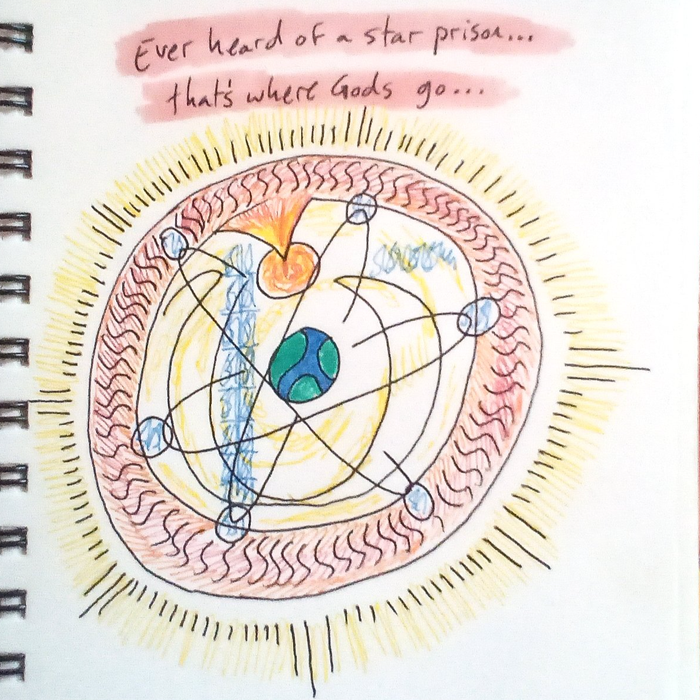 Ever heard of a star prison...
that's where Gods go...